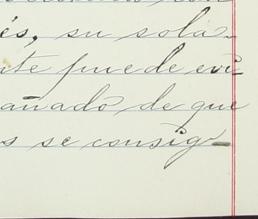 és, su sola-
te puede evi-
añado de que
s se consig-